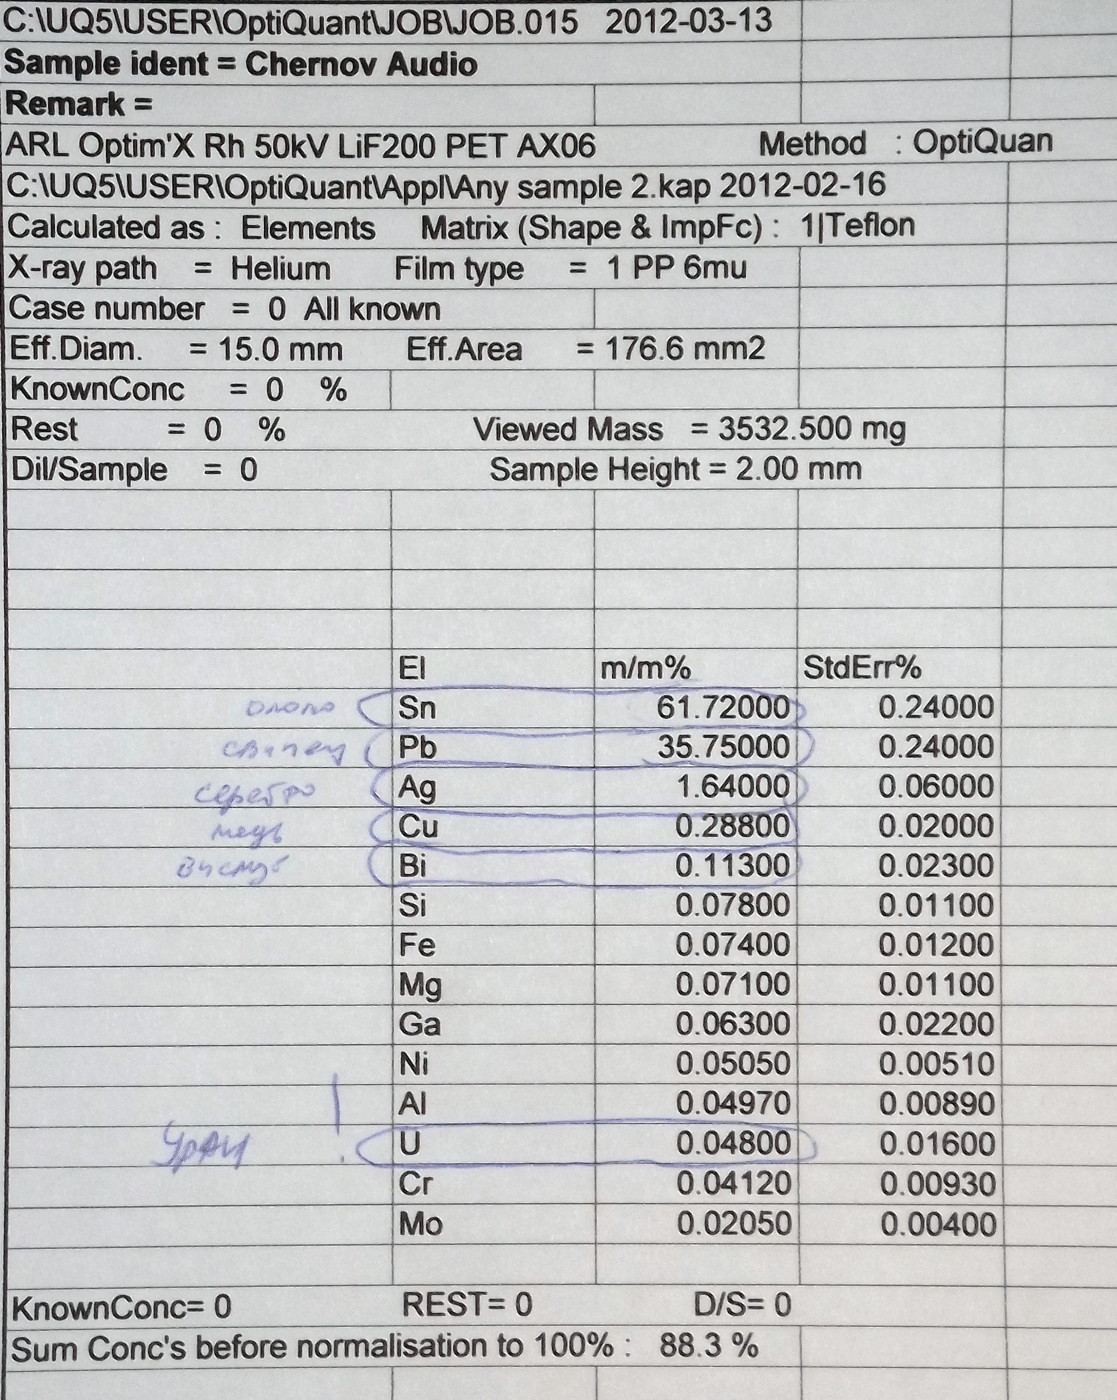 C:\UQ5\USER\OptiQuant\JOB\JOB.015 2012-03-13
Sample ident = Chernov Audio
Remark =
ARL Optim'X Rh 50kV LiF200 PET AX06 Method : OptiQuan
C:\UQ5\USER\OptiQuant\Appl\Any sample 2.kap 2012-02-16
Calculated as : Elements Matrix (Shape & ImpFc) : 1|Teflon
X-ray path = Helium Film type = 1 PP 6mu
Case number = 0 All known
Eff.Diam. = 15.0 mm Eff.Area = 176.6 mm2
KnownConc = 0 %
Rest = 0 % Viewed Mass = 3532.500 mg
Dil/Sample = 0 Sample Height = 2.00 mm
El m/m% StdErr%
олово Sn 61.72000 0.24000
свинец Pb 35.75000 0.24000
серебро Ag 1.64000 0.06000
медь Cu 0.28800 0.02000
висмут Bi 0.11300 0.02300
Si 0.07800 0.01100
Fe 0.07400 0.01200
Mg 0.07100 0.01100
Ga 0.06300 0.02200
Ni 0.05050 0.00510
Al 0.04970 0.00890
Уран ! U 0.04800 0.01600
Cr 0.04120 0.00930
Mo 0.02050 0.00400
KnownConc= 0 REST= 0 D/S= 0
Sum Conc's before normalisation to 100% : 88.3 %